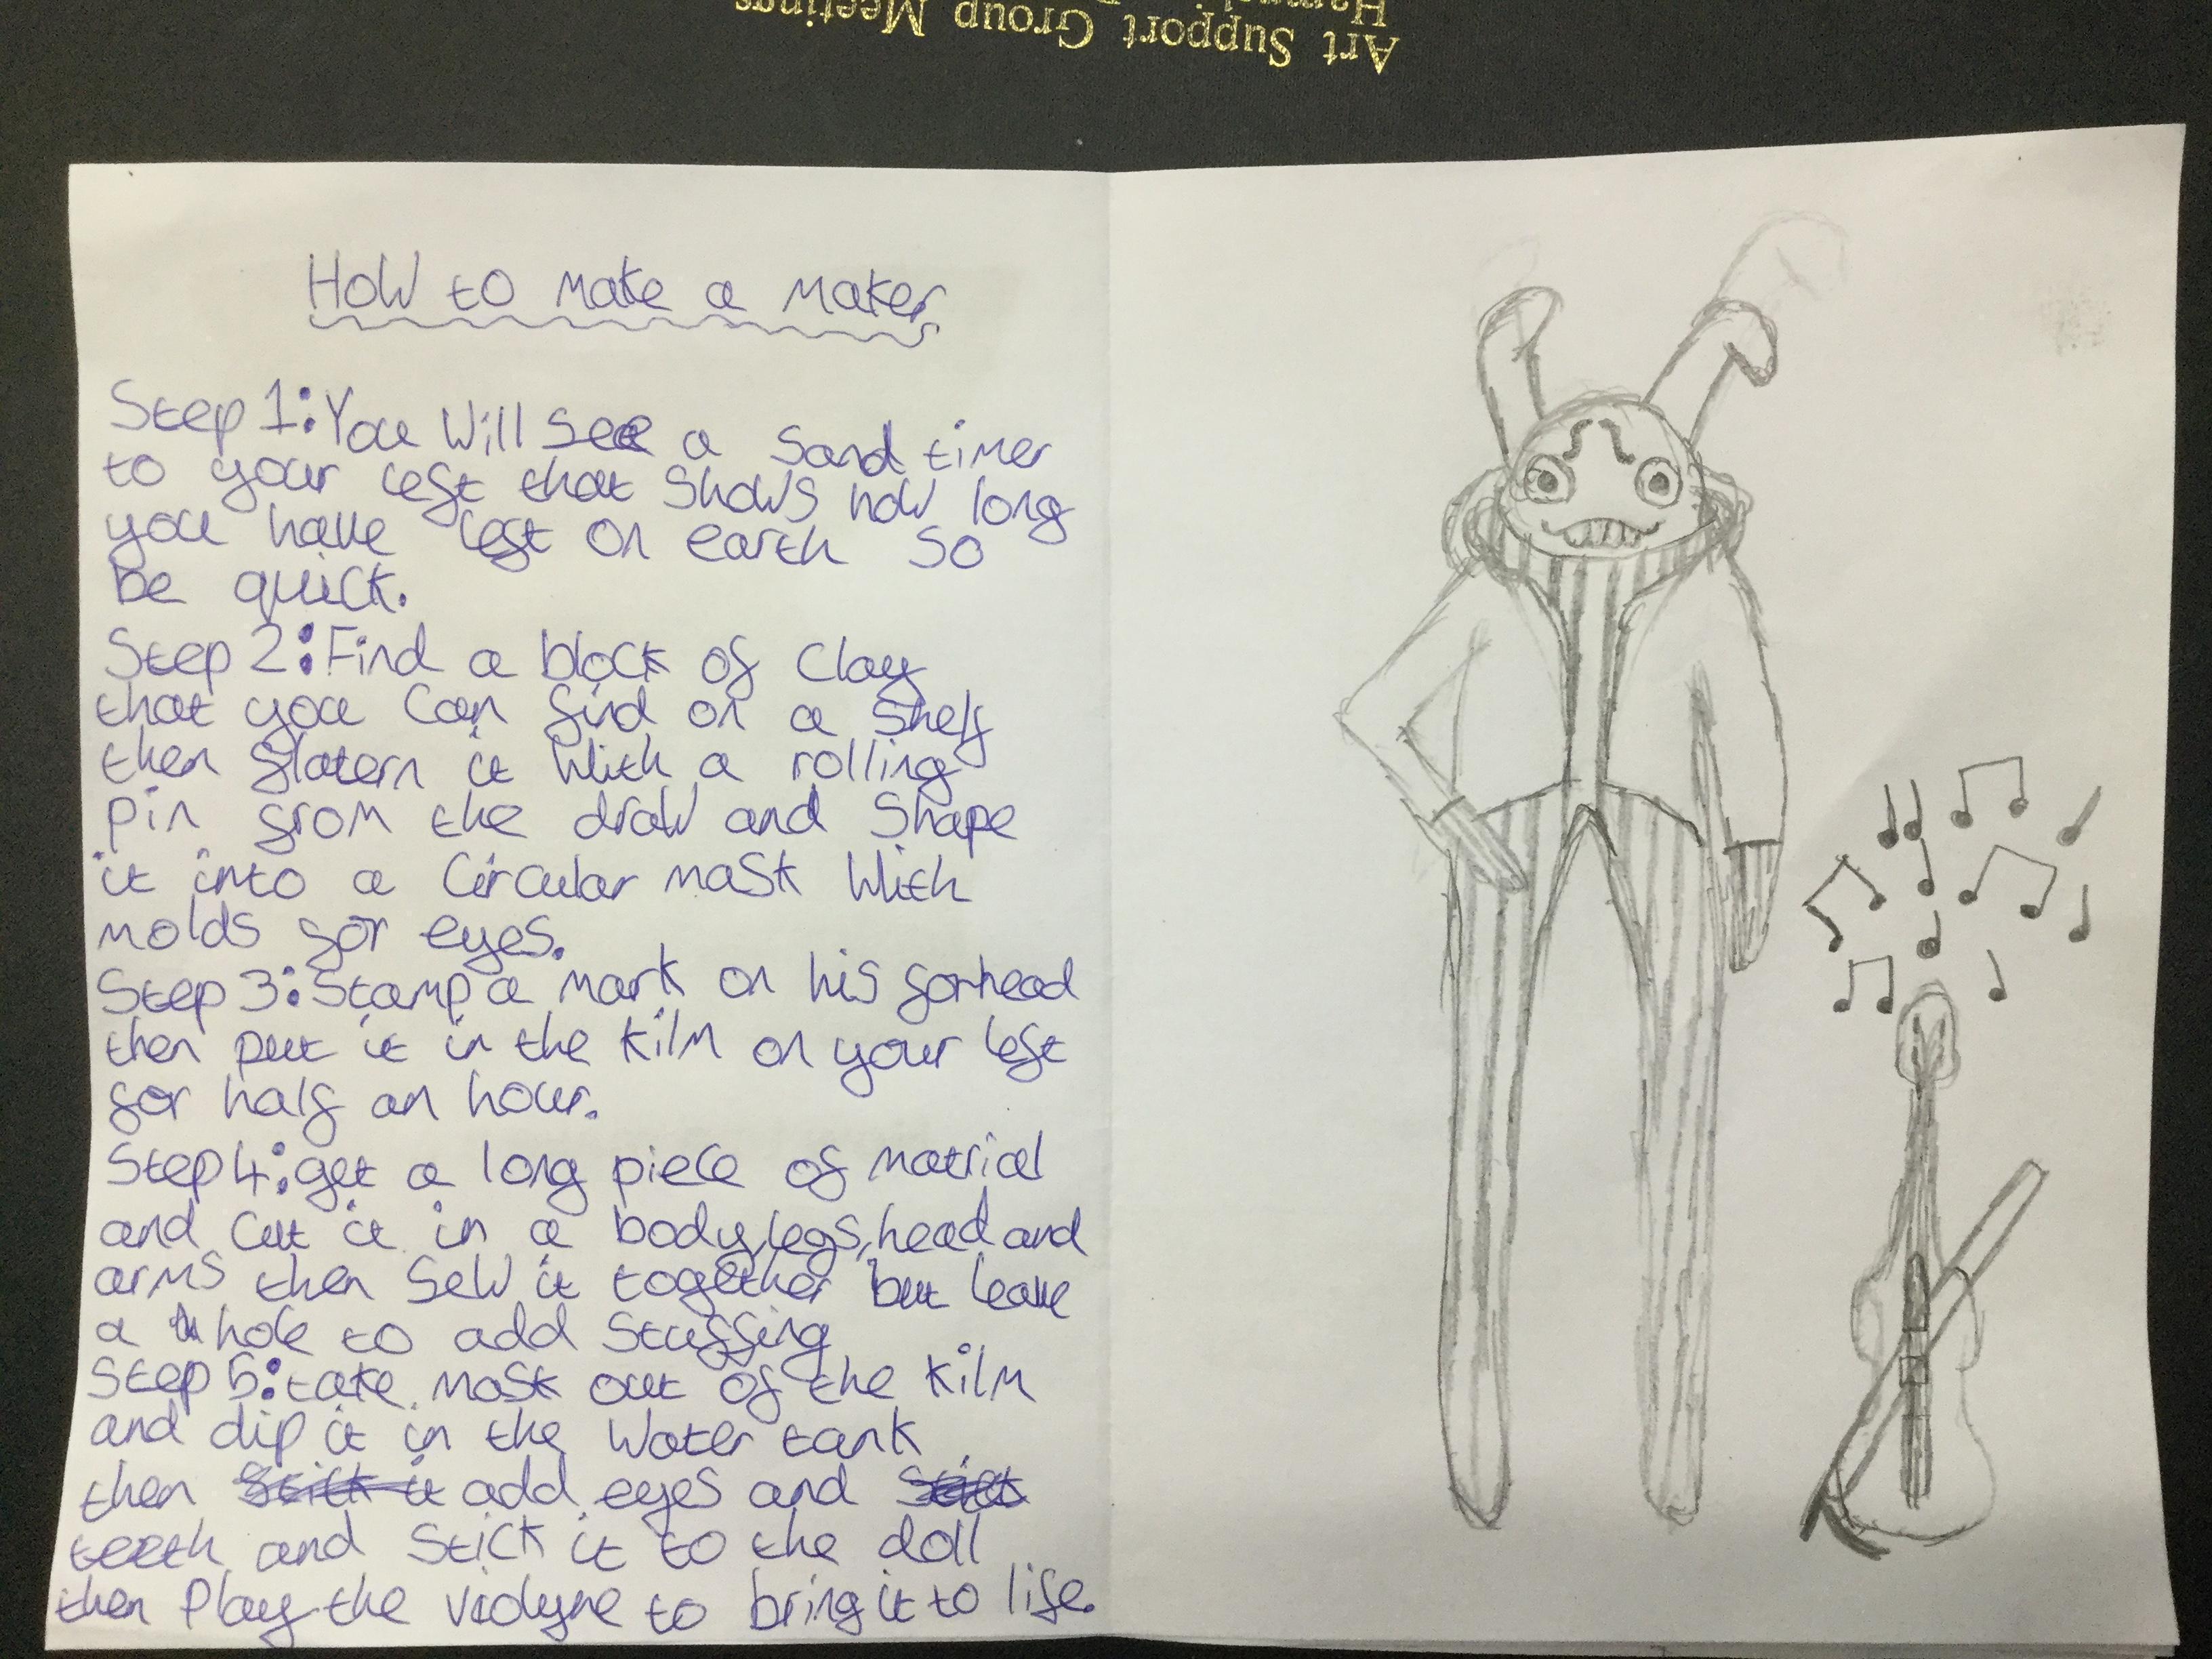 Art Support Group Meetings
How to make a maker
Step 1: You will see a sand timer
to your left that shows how long
you have left on earth so
be quick.
Step 2: Find a block of clay
that you can find on a shelf
then flatern it with a rolling
pin from the draw and shape
it into a circular mask with
molds for eyes.
Step 3: Stamp a mark on his forhead
then put it in the kilm on your left
for half an hour.
Step 4: get a long piece of matrial
and cut it in a body, legs, head and
arms then sew it together but leave
a hole to add stuffing
Step 5: take mask out of the kilm
and dip it in the water tank
then add eyes and
teeth and stick it to the doll
then play the violyne to bring it to life.